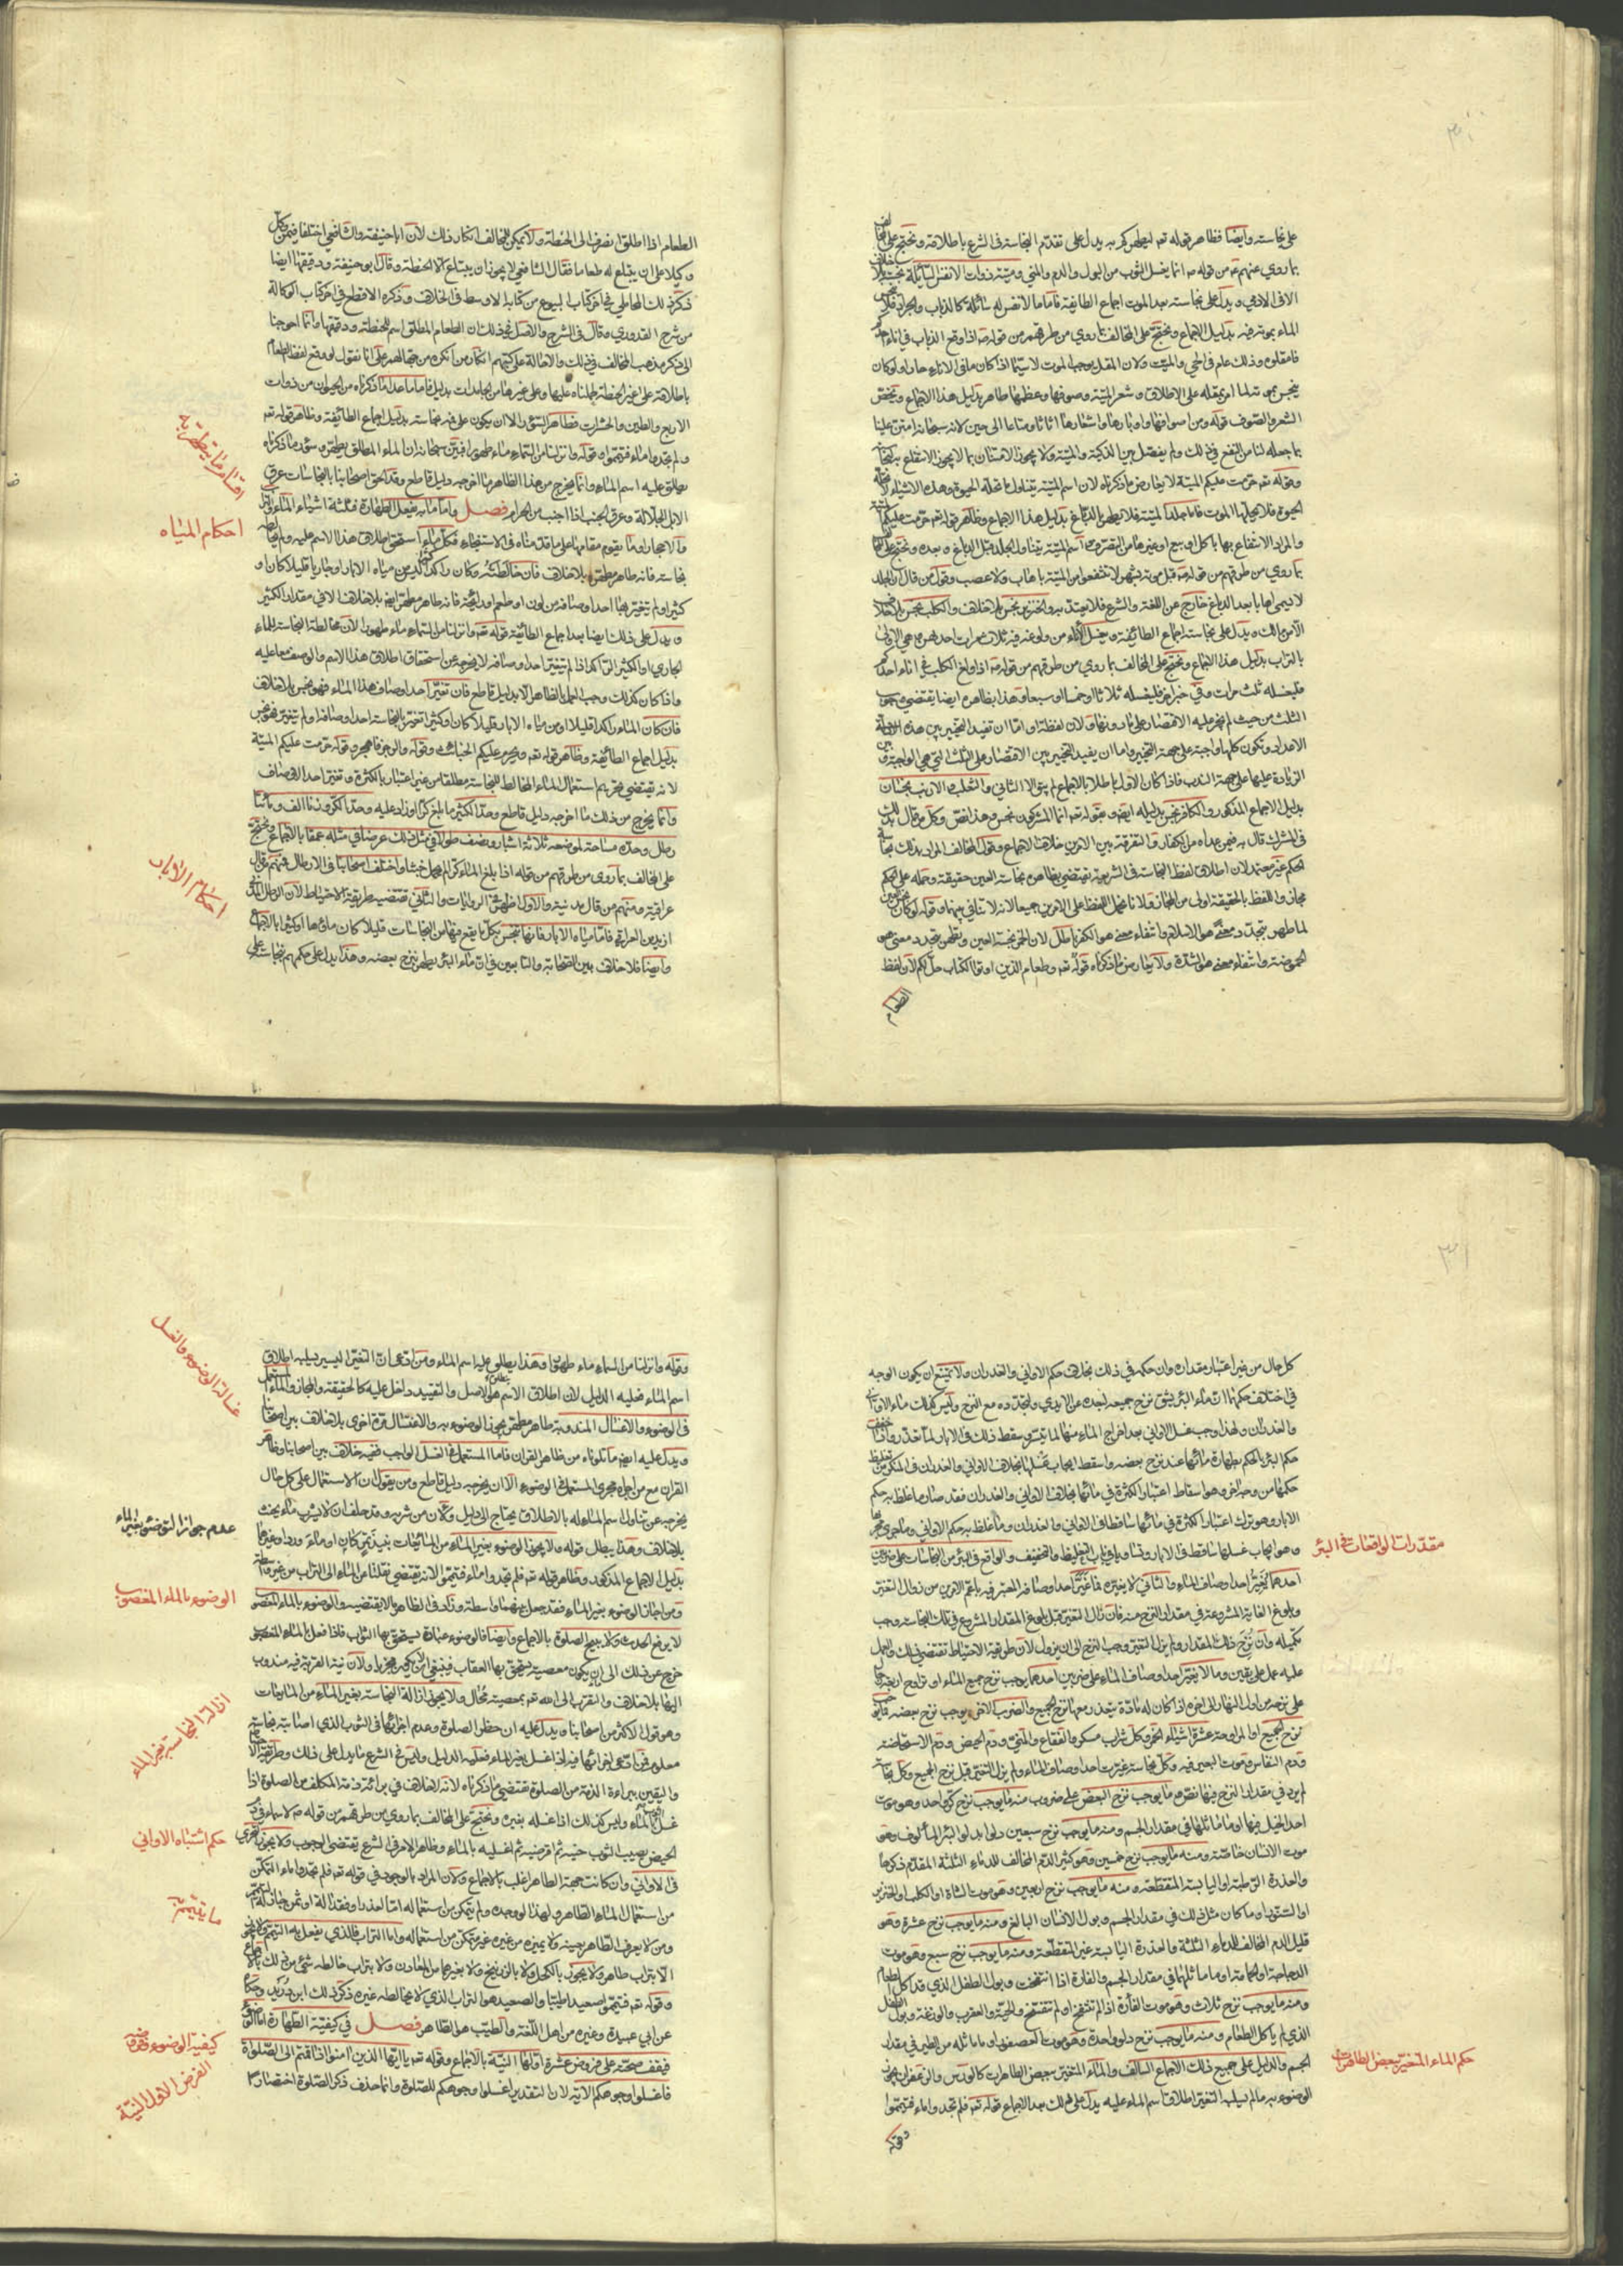 على نجاسته وأيضا فظاهر قوله تعالى ليطهركم به يدل على تقدم النجاسة في الشرع باطلاقه ونحتج على المخالف
بما روي عنهم من قوله ص انما يغسل الثوب من البول والدم والمني وميتة ذوات الانفس السائلة نجسة بلا خلاف
الا في الآدمي ويدل على نجاسته بعد الموت اجماع الطائفة فاما ما لا نفس له سائلة كالذباب والجراد فلا ينجس
الماء بموته فيه بدليل الاجماع ونحتج على المخالف بما روي من طرقهم من قوله ص اذا وقع الذباب في اناء احدكم
فامقلوه وذلك عام في الحي والميت ولان المقل يوجب الموت لا سيما اذا كان ما في الاناء حارا ولو كان
ينجس بموته لما امر بمقله على الاطلاق وشعر الميتة وصوفها وعظمها طاهر بدليل هذا الاجماع ويخص
الشعر والصوف قوله ومن اصوافها واوبارها واشعارها اثاثا ومتاعا الى حين لانه سبحانه امتن علينا
بما جعله لنا من النفع في ذلك ولم يفصل بين الذكية والميتة ولا يجوز الامتنان بما لا يجوز الانتفاع به لنجاسته
وقوله تعالى حرمت عليكم الميتة لا يعارض ما ذكرناه لان اسم الميتة يتناول ما تحله الحيوة وهذه الاشياء لا تحلها
الحيوة فلا يحلها الموت فاما جلد الميتة فلا يطهر بالدباغ بدليل هذا الاجماع وظاهر قوله تعالى حرمت عليكم الميتة
والمراد الانتفاع بها باكل او بيع او غيرهما من التصرف واسم الميتة يتناول الجلد قبل الدباغ وبعده ونحتج على المخالف
بما روي من طرقهم من قوله ص قبل موته بشهر لا تنتفعوا من الميتة باهاب ولا عصب وقول من قال ان الجلد
لا يسمى اهابا بعد الدباغ خارج عن اللغة والشرع فلا يعتد به والخنزير نجس بلا خلاف والكلب نجس بلا خلاف
الا من مالك ويدل على نجاسته اجماع الطائفة ويغسل الاناء من ولوغه فيه ثلاث مرات احديهن وهي الاولى
بالتراب بدليل هذا الاجماع ونحتج على المخالف بما روي من طرقهم من قوله ص اذا ولغ الكلب في اناء احدكم
فليغسله ثلث مرات وفي خبر آخر فليغسله ثلاثا او خمسا او سبعا وهذا بظاهره ايضا يقتضي وجوب
الثلث من حيث لم يجز عليه الاقتصار على ما دونها ولان لفظة او اما ان تفيد التخيير بين هذه الاعداد
الاعداد وتكون كلها واجبة على جهة التخيير واما ان يفيد التخيير بين الاقتصار على الثلث التي هي الواجبة وبين
الزيادة عليها على جهة الندب فاذا كان الاول باطلا بالاجماع لم يبق الا الثاني والثعلب والارنب نجسان
بدليل الاجماع المذكور والكافر نجس بدليله ايضا وبقوله تعالى انما المشركون نجس وهذا نص وكل من قال بذلك
في المشرك قال به فيمن عداه من الكفار والتفرقة بين الامرين خلاف الاجماع وقول المخالف المراد بذلك نجاسة
الحكم غير معتمد لان اطلاق لفظ النجاسة في الشريعة يقتضي بظاهره نجاسة العين حقيقة وحمله على الحكم
مجاز واللفظ بالحقيقة اولى من المجاز ولانا نحمل اللفظ على الامرين جميعا لانه لا تنافي بينهما وقوله لو كان نجس العين
لما طهر بتجدد معنى هو الاسلام وانتفاء معنى هو الكفر باطل لان الخمر نجسة العين وتطهر بتجدد معنى هو
الحموضة وانتفاء معنى هو الشدة ولا يعارض ما ذكرناه قوله تعالى وطعام الذين اوتوا الكتاب حل لكم لان لفظ
الطعام
الطعام اذا اطلق انصرف الى الحنطة ولا يمكن المخالف انكار ذلك لان ابا حنيفة والشافعي اختلفا فيمن وكل
وكيلا على ان يبتاع له طعاما فقال الشافعي لا يجوز ان يبتاع الا الحنطة وقال ابو حنيفة ودقيقها ايضا
ذكر ذلك المحاملي في آخر كتاب البيوع من كتابه الاوسط في الخلاف وذكره الاقطع في آخر كتاب الوكالة
من شرح القدوري وقال في الشرح والاصل في ذلك ان الطعام المطلق اسم للحنطة ودقيقها وانما احوجنا
الى ذكر مذهب المخالف في ذلك والاحالة على كتبهم انكار من انكره من جهالهم على انا نقول لو وقع لفظ الطعام
باطلاقه على غير الحنطة لحملناه عليها وعلى غيرها من الجامدات بدليل فاما ما عدا ما ذكرناه من الحيوان من ذوات
الاربع والطير والحشرات فطاهر السؤر الا ان يكون على فمه نجاسة بدليل اجماع الطائفة وظاهر قوله تعالى
ولم تجدوا ماء فتيمموا وقوله وانزلنا من السماء ماء طهورا فبين سبحانه ان الماء المطلق يطهر وسؤر ما ذكرناه
ينطلق عليه اسم الماء وانما يخرج من هذا الظاهر ما اخرجه دليل قاطع وقد الحق اصحابنا بالنجاسات عرق
الابل الجلالة وعرق الجنب اذا اجنب من الحرام فصل واما ما به يفعل الطهارة فثلثة اشياء الماء والتراب
والاحجار او ما يقوم مقامها على ما قدمناه في الاستنجاء فكل ماء استحق اطلاق هذا الاسم عليه ولم يخالطه
نجاسة فانه طاهر مطهر بلا خلاف فان خالطته وكان راكدا كثيرا ليس من مياه الابار او جاريا قليلا كان او
كثيرا ولم يتغير بها احد اوصافه من لون او طعم او رائحة فانه طاهر مطهر ايضا بلا خلاف الا في مقدار الكثير
ويدل على ذلك ايضا بعد اجماع الطائفة قوله تعالى وانزلنا من السماء ماء طهورا لان مخالطة النجاسة للماء
الجاري او الكثير الراكد اذا لم يتغير احد اوصافه لا يخرجه عن استحقاق اطلاق هذا الاسم والوصف معا عليه
واذا كان كذلك وجب العمل بالظاهر الا بدليل قاطع فان تغير احد اوصاف هذا الماء فهو نجس بلا خلاف
فان كان الماء راكدا قليلا او من مياه الابار قليلا كان او كثيرا تغير بالنجاسة احد اوصافه او لم يتغير فهو نجس
بدليل اجماع الطائفة وظاهر قوله تعالى ويحرم عليكم الخبائث وقوله والرجز فاهجر وقوله حرمت عليكم الميتة
لانه يقتضي تحريم استعمال الماء المخالط للنجاسة مطلقا من غير اعتبار بالكثرة وتغير احد الاوصاف
وانما يخرج من ذلك ما اخرجه دليل قاطع وحد الكثير ما بلغ كرا او زاد عليه وحد الكر وزنا الف ومائتا
رطل وحده مساحة لموضعه ثلاثة اشبار ونصف طولا في مثل ذلك عرضا في مثله عمقا بالاجماع ونحتج
على المخالف بما روي من طرقهم من قوله اذا بلغ الماء كرا لم يحمل خبثا واختلف اصحابنا في الارطال فمنهم من قال
عراقية ومنهم من قال مدنية والاول اظهر في الروايات والثاني تقتضيه طريقة الاحتياط لان الرطل المدني
ازيد من العراقي فاما مياه الابار فانها تنجس بكل ما يقع فيها من النجاسات قليلا كان ماؤها او كثيرا بالاجماع
وايضا فلا خلاف بين الصحابة والتابعين في ان ماء البئر يطهر بنزح بعضه وهذا يدل على حكمهم بنجاسته على
احكام المياه
احكام الابار
كل حال من غير اعتبار مقداره وان حكمه في ذلك بخلاف حكم الاواني والغدران ولا يمتنع ان يكون الوجه
في اختلاف حكمهما ان ماء البئر يشق نزح جميعه لبعده عن الايدي ولتجدده مع النزح وليس كذلك ماء الاواني
والغدران ولهذا وجب غسل الاواني بعد اخراج الماء منها لما تيسر وسقط ذلك في الابار لما تعذر واذا خفف
حكم البئر بالحكم بطهارة مائها عند نزح بعضه واسقط ايجاب غسلها بخلاف الاواني والغدران في الحكمين تغلظ
حكمها من وجه آخر وهو اسقاط اعتبار الكثرة في مائها بخلاف الاواني والغدران فقد صار ما غلظ به حكم
الابار وهو ترك اعتبار الكثرة في مائها ساقطا في الاواني والغدران وما غلظ به حكم الاواني وما جرى مجراها
وهو ايجاب غسلها ساقط في الابار وتساويا في باب التغليظ والتخفيف والواقع في البئر من النجاسات على ضربين
احدهما يغير احد اوصاف الماء والثاني لا يغيره فما غير احد اوصافه المعتبر فيه باعم الامرين من زوال التغير
وبلوغ الغاية المشروعة في مقدار النزح منه فان زال التغير قبل بلوغ المقدار المشروع في تلك النجاسة وجب
تكميله وان نزح ذلك المقدار ولم يزل التغير وجب النزح الى ان يزول لان طريقة الاحتياط تقتضي ذلك والعمل
عليه عمل على يقين وما لا يغير احد اوصاف الماء على ضربين احدهما يوجب نزح جميع الماء او تراوح اربعة رجال
على نزحه من اول النهار الى آخره اذا كان له مادة يتعذر معها نزح الجميع والضرب الآخر يوجب نزح بعضه فما يوجب
نزح الجميع او المراوحة عشرة اشياء الخمر وكل شراب مسكر والفقاع والمني ودم الحيض ودم الاستحاضة
ودم النفاس وموت البعير فيه وكل نجاسة غيرت احد اوصاف الماء ولم يزل التغير قبل نزح الجميع وكل نجاسة
لم يرد في مقدار النزح فيها نص وما يوجب نزح البعض على ضروب منه ما يوجب نزح كر واحد وهو موت
احد الخيل فيها او ما ماثلها في مقدار الجسم ومنه ما يوجب نزح سبعين دلوا بدلو البئر المألوف وهو
موت الانسان خاصة ومنه ما يوجب نزح خمسين وهو كثير الدم المخالف للدماء الثلثة المقدم ذكرها
والعذرة الرطبة او اليابسة المتقطعة ومنه ما يوجب نزح اربعين وهو موت الشاة او الكلب او الخنزير
او السنور او ما كان مثل ذلك في مقدار الجسم وبول الانسان البالغ ومنه ما يوجب نزح عشرة وهو
قليل الدم المخالف للدماء الثلثة والعذرة اليابسة غير المتقطعة ومنه ما يوجب نزح سبع وهو موت
الدجاجة او الحمامة او ما ماثلها في مقدار الجسم والفارة اذا انتفخت وبول الطفل الذي قد اكل الطعام
ومنه ما يوجب نزح ثلاث وهو موت الفارة اذا لم تنتفخ او لم تتفسخ والحية والعقرب والوزغة وبول الطفل
الذي لم ياكل الطعام ومنه ما يوجب نزح دلو واحدة وهو موت العصفور او ما ماثله من الطير في مقدار
الجسم والدليل على جميع ذلك الاجماع السالف والماء المتغير ببعض الطاهرات كالورس والزعفران يجوز
الوضوء به ما لم يسلبه التغير اطلاق اسم الماء عليه يدل على ذلك بعد الاجماع قوله تعالى فلم تجدوا ماء فتيمموا
وقوله
مقدرات الواقعات في البئر
حكم الماء المتغير ببعض الطاهرات
وقوله وانزلنا من السماء ماء طهورا وهذا يطلق عليه اسم الماء ومن ادعى ان التغير اليسير يسلبه اطلاق
اسم الماء فعليه الدليل لان اطلاق الاسم هو الاصل والتقييد داخل عليه كالحقيقة والمجاز والماء المستعمل
في الوضوء والاغتسال المندوبة طاهر مطهر يجوز الوضوء به والاغتسال مرة اخرى بلا خلاف بين اصحابنا
ويدل عليه ايضا ما تلوناه من ظاهر القرآن فاما المستعمل في الغسل الواجب ففيه خلاف بين اصحابنا وظاهر
القرآن مع من اجراه مجرى المستعمل في الوضوء الا ان يخرجه دليل قاطع ومن يقول ان الاستعمال على كل حال
يخرجه عن تناول اسم الماء له بالاطلاق يحتاج الى دليل ولان من شربه وقد حلف ان لا يشرب ماء يحنث
بلا خلاف وهذا يبطل قوله ولا يجوز الوضوء بغير الماء من المائعات نبيذ تمر كان او ماء ورد او غيرهما
بدليل الاجماع المذكور وظاهر قوله تعالى فلم تجدوا ماء فتيمموا لانه يقتضي نقلنا عن الماء الى التراب من غير واسطة
ومن اجاز الوضوء بغير الماء فقد جعل بينهما واسطة وزاد في الظاهر ما لا يقتضيه والوضوء بالماء المغصوب
لا يرفع الحدث ولا يبيح الصلوة بالاجماع وايضا فالوضوء عبادة يستحق بها الثواب فاذا فعل بالماء المغصوب
خرج عن ذلك الى ان يكون معصية يستحق بها العقاب فينبغي ان لا يكون مجزيا ولان نية القربة فيه مندوب
اليها بلا خلاف والتقرب الى الله تعالى بمعصيته محال ولا يجوز ازالة النجاسة بغير الماء من المائعات
وهو قول الاكثر من اصحابنا ويدل عليه ان حظر الصلوة وعدم اجزائها في الثوب الذي اصابته نجاسة
معلوم فمن ادعى اجزائها فيه اذا غسل بغير الماء فعليه الدليل وليس في الشرع ما يدل على ذلك وطريقة الاحتياط
واليقين ببراءة الذمة من الصلوة تقتضي ما ذكرناه لانه لا خلاف في براءة ذمة المكلف من الصلوة اذا
غسل الثوب بالماء وليس كذلك اذا غسله بغيره ونحتج على المخالف بما روي من طرقهم من قوله ص لاسماء في دم
الحيض يصيب الثوب حتيه ثم اقرصيه ثم اغسليه بالماء وظاهر الامر في الشرع يقتضي الوجوب ولا يجوز التحري
في الاواني وان كانت جهة الطاهر اغلب بالاجماع ولان المراد بالوجود في قوله تعالى فلم تجدوا ماء التمكن
من استعمال الماء الطاهر ولهذا لو وجده ولم يتمكن من استعماله اما لعذر او فقد آلة او ثمن جاز له التيمم
ومن لا يعرف الطاهر بعينه ولا يميزه من غيره غير متمكن من استعماله واما التراب فالذي يفعل به التيمم ولا يجوز
الا بتراب طاهر ولا يجوز بالكحل ولا بالزرنيخ ولا بغيرهما من المعادن ولا بتراب خالطه شيء من ذلك بالاجماع
وقوله تعالى فتيمموا صعيدا طيبا والصعيد هو التراب الذي لا يخالطه غيره ذكر ذلك ابن دريد وحكاه
عن ابي عبيدة وغيره من اهل اللغة والطيب هو الطاهر فصل في كيفية الطهارة اما الوضوء
فيقف صحته على فروض عشرة اولها النية بالاجماع وقوله تعالى يا ايها الذين آمنوا اذا قمتم الى الصلوة
فاغسلوا وجوهكم الآية لان التقدير اغسلوا وجوهكم للصلوة وانما حذف ذكر الصلوة اختصارا
غسالة الوضوء والغسل
عدم جواز التوضؤ بغير الماء
الوضوء بالماء المغصوب
ازالة النجاسة بغير الماء
حكم اشتباه الاواني
ما يتيمم به
كيفية الوضوء وفروضه
الفرض الاول النية